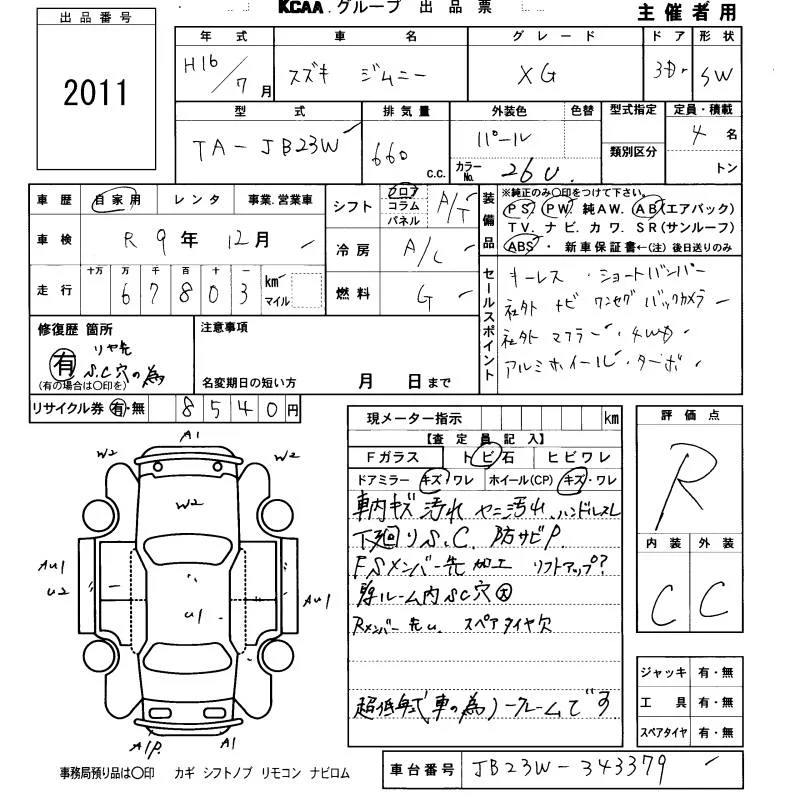 KCAA.グループ 出品票
主催者用
出品番号
2011
年式 車名 グレード ドア 形状
H16/7月 スズキ ジムニー XG 3D SW
型式 排気量 外装色 色替 型式指定 定員・積載
TA-JB23W 660 c.c. パール 4名
カラーNo. 26U 類別区分 トン
車歴 自家用 レンタ 事業.営業車
シフト フロア コラム パネル A/T
装備品 ※純正のみ〇印をつけて下さい。
PS. PW. 純AW. AB(エアバック)
TV. ナビ. カワ. SR(サンルーフ)
ABS・新車保証書←(注)後日送りのみ
車検 R9年12月
冷房 A/C
走行 十万 万 千 百 十 一 km マイル
67803
燃料 G
セールスポイント
キーレス・ショートバンパー
社外ナビ ワンセグ バックカメラ
社外マフラー・4WD
アルミホイール・ターボ
修復歴 箇所
有 リヤ先
S.C穴の為
(有の場合は〇印を)
注意事項
名変期日の短い方 月 日まで
リサイクル券 有・無 8540円
現メーター指示 km
【査定員記入】
Fガラス トビ石 ヒビワレ
ドアミラー キズ・ワレ ホイール(CP) キズ・ワレ
車内キズ 汚れ ヤニ汚れ ハンドルスレ
下廻りS.C. 防サビP.
FSメンバー先 加工 リフトアップ?
扉ルーム内SC穴大
Rメンバー先u. スペアタイヤ欠
超低年式車の為ノークレームです
評価点
R
内装 外装
C C
ジャッキ 有・無
工具 有・無
スペアタイヤ 有・無
A1
W2 W2
W2
AU1
U2
U1
AU1
A1P. A1
事務局預り品は〇印 カギ シフトノブ リモコン ナビロム
車台番号 JB23W-343379